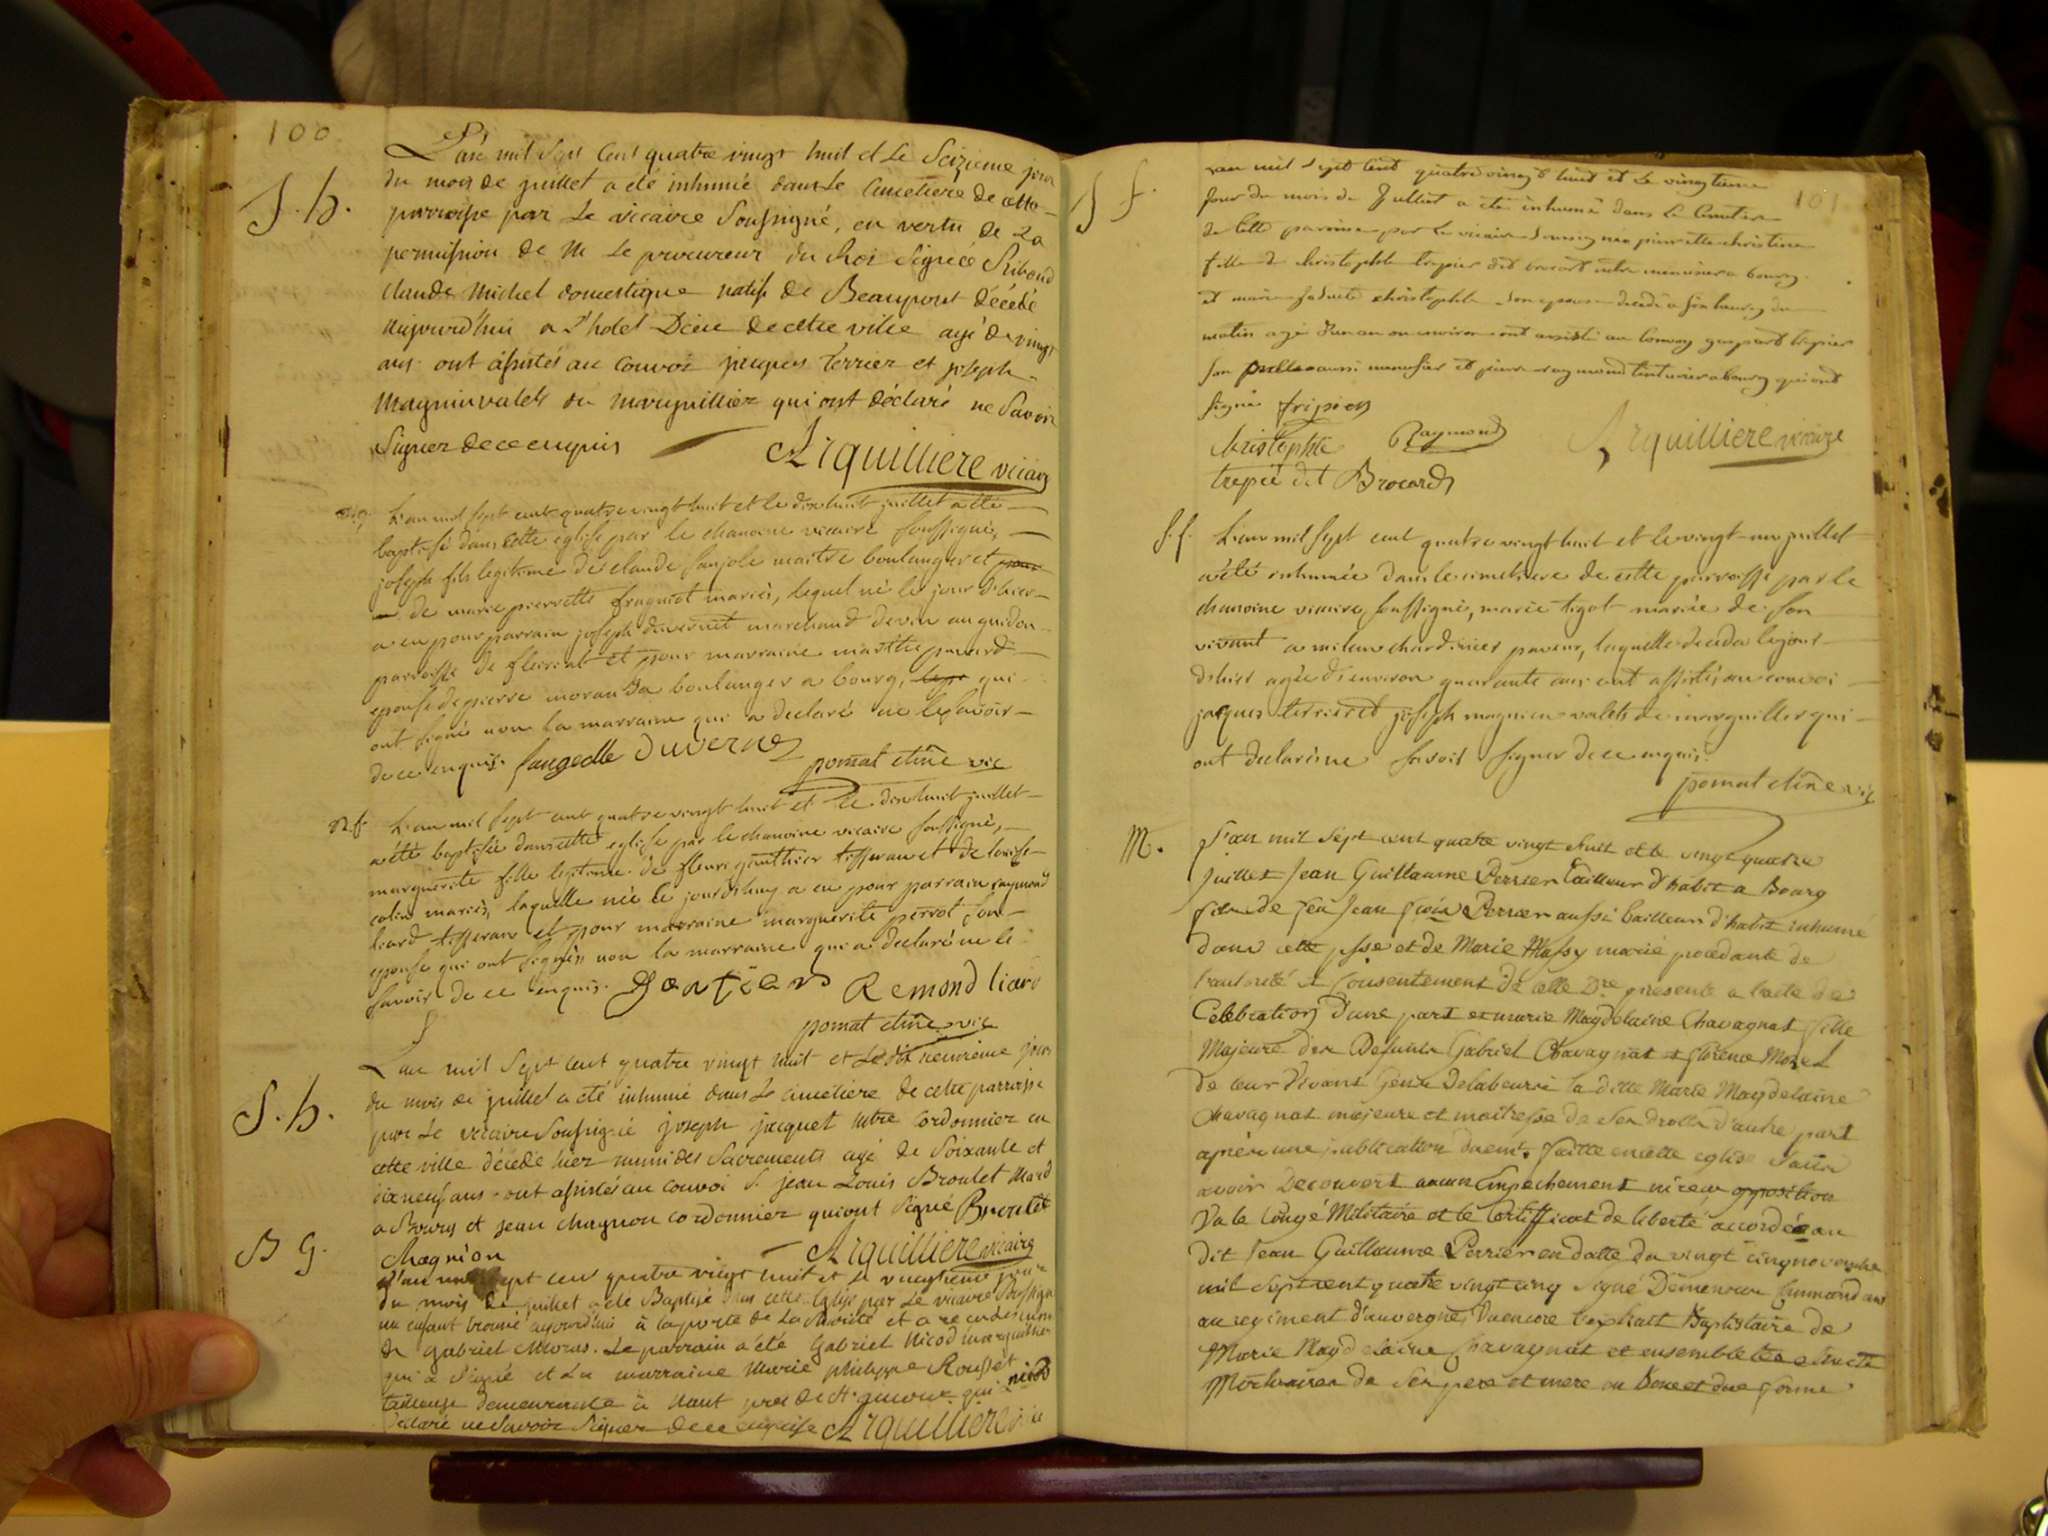 100
S. h.
L'an mil sept cent quatre vingt huit et le seizieme jour
du mois de juillet a été inhumé dans le cimetiere de cette
parroisse par le vicaire soussigné, en vertu de la
permission de M le procureur du Roi signée Riboud
claude Michel domestique natif de Beaupont décédé
aujourd'hui a l'hotel Dieu de cette ville agé de vingt
ans. ont assistés au convoi jacques terrier et joseph
Magnin valets du marguillier qui ont déclaré ne savoir
signer de ce enquis
Arquilliere vicaire
L'an mil sept cent quatre vingt huit et le dix huit juillet a été
baptisé dans cette eglise par le chanoine vicaire soussigné,
joseph fils legitime de claude maitre boulanger et
de marie pierrette mariés, lequel né le jour d'hier
a eu pour parrain joseph duvernet marchand de vin au guidon
parroisse de et pour marraine
epouse de pierre boulanger a bourg, qui
ont signés non la marraine qui a declaré ne le savoir
de ce enquis. Duvernes
pomat chne vic
B. f.
L'an mil sept cent quatre vingt huit et le dix huit juillet
a été baptisée dans cette eglise par le chanoine vicaire soussigné,
marguerite fille legitime de fleuri gauthier tisseran et de louise
colin mariés, laquelle née le jour d'huy a eu pour parrain raymond
liard tisseran et pour marraine marguerite perrot son
epouse qui ont signés non la marraine qui a declaré ne le
savoir de ce enquis. Remond liard
pomat chne vic
S. h.
L'an mil sept cent quatre vingt huit et le dix neuvieme jour
du mois de juillet a été inhumé dans le cimetiere de cette parroisse
par le vicaire soussigné joseph jacquet mtre cordonnier en
cette ville décédé hier muni des sacrements agé de soixante et
dix neuf ans. ont assistés au convoi S. jean Louis Broulet Mard
a Bourg et jean chagnon cordonnier qui ont signé Broulet
Arquilliere vicaire
B G.
L'an mil sept cent quatre vingt huit et le vingtieme jour
du mois de juillet a été Baptisé dans cette Eglise par le vicaire soussigné
un enfant trouvé aujourd'hui à la porte de la charité et a
de gabriel . Le parrain a été gabriel Nicod marguillier
qui a signé et la marraine Marie philippe Rousset
tailleuse demeurante à qui nicod
déclaré ne savoir signer de ce enquise Arquilliere
101
S f.
L'an mil sept cent quatre vingt huit et le vingtieme
jour du mois de Juillet a été inhumé dans le cimetiere
de cette paroisse par le vicaire soussigné pierrette christine
fille de christophle trepier dit brocard mtre menuisier a bourg
et marie christophle son epouse decedé a
matin agé d'un an ou environ ont assisté au convoy gaspard trepier
son aussi menuisier et pierre raymond a bourg qui ont
signé
christophle Raymond Arquilliere vicaire
trepié dit Brocard
S. f.
L'an mil sept cent quatre vingt huit et le vingt-un juillet
a été inhumée dans le cimetiere de cette parroisse par le
chanoine vicaire soussigné, marie tigot mariée de son
vivant a paveur, laquelle deceda le jour
d'hier agée d'environ quarante ans ont assistés au convoi
jacques terrier et joseph magnien valets de marguiller qui
ont declaré ne savoir signer de ce enquis.
pomat chne vic
M.
L'an mil sept cent quatre vingt huit et le vingt quatre
juillet Jean Guillaume Perrier Tailleur d'habit a Bourg
fils de feu Jean fçois Perrier aussi tailleur d'habit inhumé
dans cette psse et de Marie Massy marié procedante de
l'autorité et consentement de celle dre presente a l'acte de
Celebration d'une part et marie Magdelaine Chavagnat fille
Majeure des Defunts Gabriel Chavagnat et florence Morel
de leur vivant la ditte Marie Magdelaine
Chavagnat majeure et maitresse de ses droits d'autre part
après une publication duemt faitte en cette eglise sans
avoir Decouvert aucun Empechement ni reçu opposition
Vu le Congé Militaire et le Certifficat de liberté accordé au
dit Jean Guillaume Perrier en datte du vingt cinq novembre
mil sept cent quatre vingt cinq signé Commandant
au regiment d'auvergne, Vu encore l'extrait Baptistaire de
Marie Magdelaine Chavagnat et ensemble les
Mortuaires de ses pere et mere en bone et due forme